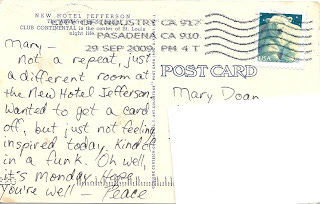 NEW HOTEL JEFFERSON
CLUB CONTINENTAL is the center of St. Louis
night life.
CITY OF INDUSTRY CA 917
PASADENA CA 910
29 SEP 2009 PM 4 T
USA
POST CARD
Mary Doan
Mary—
Not a repeat, just
a different room at
the New Hotel Jefferson.
Wanted to get a card
off, but just not feeling
inspired today. Kind of
in a funk. Oh well,
it's Monday. Hope
You're well — Peace